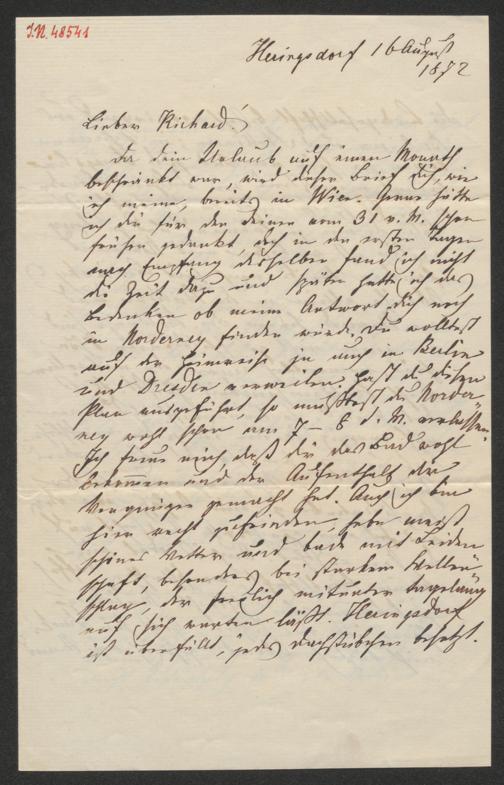 I.N. 48541
Heringsdorf 16 August
1872
Lieber Richard!
Da dein Urlaub auf einen Monath
beschränkt war, wird dieser Brief dich, wie
ich meine, bereits in Wien. Gerne hätte
ich dir für den deinen vom 31 v. M. schon
früher gedankt, doch in den ersten Tagen
nach Empfang desselben fand ich nicht
die Zeit dazu und später hatte ich das
Bedenken ob meine Antwort dich noch
in Norderney finden würde. Du wolltest
auf der Heimreise ja auch in Berlin
und Dresden verweilen. Hast du diesen
Plan ausgeführt, so mußtest du Norder-
ney wohl schon am 7-8 d. M. verlassen.
Ich freue mich, daß dir das Bad wohl
bekommen und der Aufenthalt dir
Vergnügen gemacht hat. Auch ich bin
hier recht zufrieden, habe meist
schönes Wetter und bade mit Leiden-
schaft, besonders bei starkem Wellen-
schlag, der freilich mitunter tagelang
auf sich warten läßt. Heringsdorf
ist überfüllt, jedes Dachstübchen besetzt.